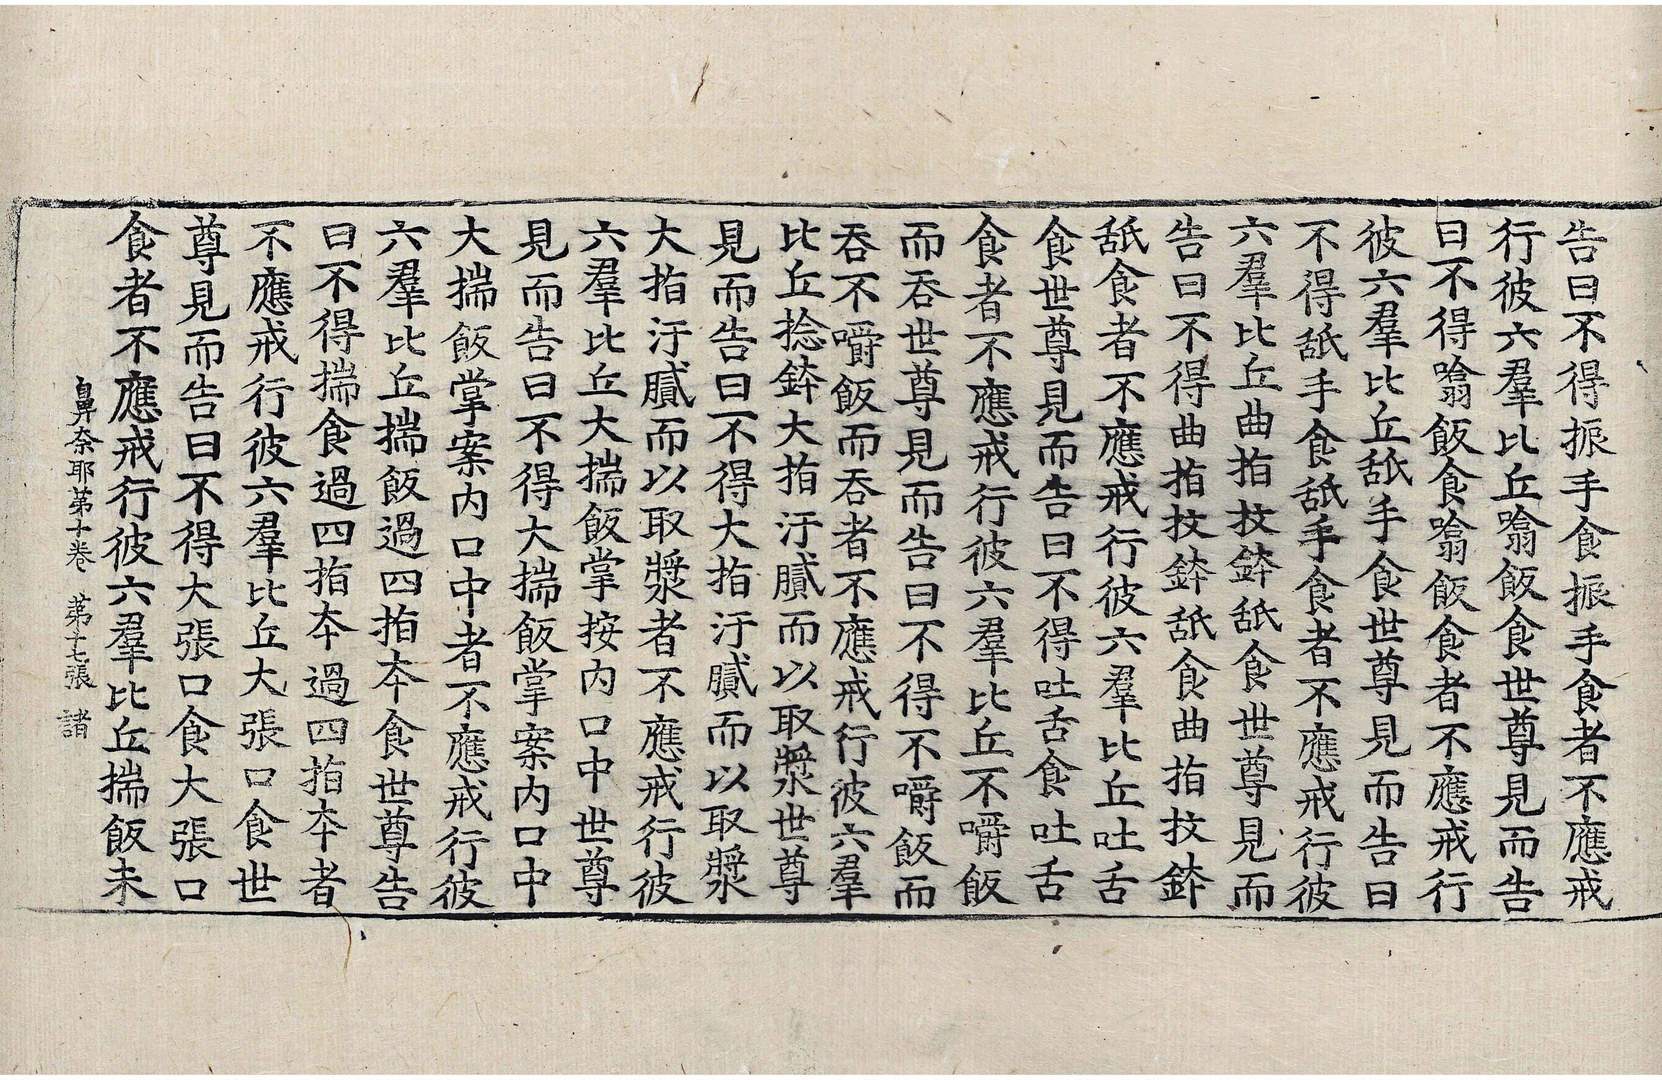 告曰不得振手食振手食者不應戒
行彼六羣比丘噏飯食世尊見而告
曰不得噏飯食噏飯食者不應戒行
彼六羣比丘舐手食世尊見而告曰
不得舐手食舐手食者不應戒行彼
六羣比丘曲指抆鉢舐食世尊見而
告曰不得曲指抆鉢舐食曲指抆鉢
舐食者不應戒行彼六羣比丘吐舌
食世尊見而告曰不得吐舌食吐舌
食者不應戒行彼六羣比丘不嚼飯
而吞世尊見而告曰不得不嚼飯而
吞不嚼飯而吞者不應戒行彼六羣
比丘捻鉢大指汙膩而以取漿世尊
見而告曰不得大指汙膩而以取漿
大指汙膩而以取漿者不應戒行彼
六羣比丘大揣飯掌按內口中世尊
見而告曰不得大揣飯掌案內口中
大揣飯掌案內口中者不應戒行彼
六羣比丘揣飯過四指夲食世尊告
曰不得揣食過四指夲過四指夲者
不應戒行彼六羣比丘大張口食世
尊見而告曰不得大張口食大張口
食者不應戒行彼六羣比丘揣飯未
鼻奈耶第十卷 第十七張 諸